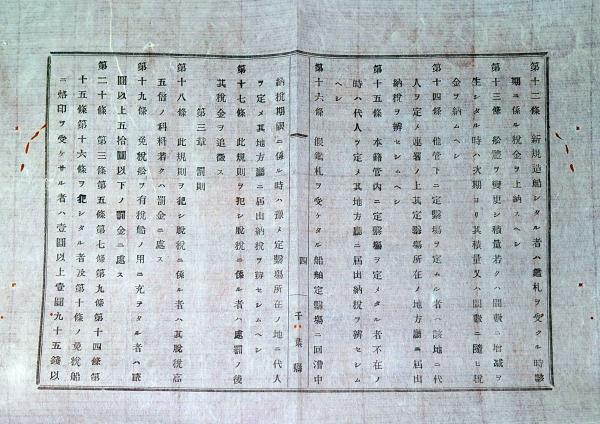 第十二條　新規造船シタル者ハ鑑札ヲ受クル時該
期ニ係ル税金ヲ上納スヘシ
第十三條　船體ヲ變更シ積量若クハ間數ニ增減ヲ
生シタル時ハ次期ヨリ其積量又ハ間數ニ隨ヒ税
金ヲ納ムヘシ
第十四條　他管下ニ定繫塲ヲ定ムル者ハ該地ニ代
人ヲ定メ連署ノ上其定繫塲所在ノ地方廳ニ届出
納税ヲ辨セシムヘシ
第十五條　本籍管内ニ定繫塲ヲ定メタル者不在ノ
時ハ代人ヲ定メ其地方廳ニ届出納税ヲ辨セシム
ヘシ
第十六條　假鑑札ヲ受ケタル船舶定繫塲ニ回漕中
四
千葉縣
納税期限ニ係ル時ハ豫メ定繫塲所在ノ地ニ代人
ヲ定メ其地方廳ニ届出納税ヲ辨セシムヘシ
第十七條　此規則ヲ犯シ脱税ニ係ル者ハ處罰ノ後
其税金ヲ追徵ス
第三章　罰則
第十八條　此規則ヲ犯シ脱税ニ係ル者ハ其脱税高
五倍ノ科料若クハ罰金ニ處ス
第十九條　免税船ヲ有税船ノ用ニ充ヲタル者ハ貳
圓以上五拾圓以下ノ罰金ニ處ス
第二十條　第三條第五條第七條第九條第十四條第
十五條第十六條ヲ犯シタル者及第十條ノ免税船
ニ烙印ヲ受ケサル者ハ壹圓以上壹圓九十五錢以